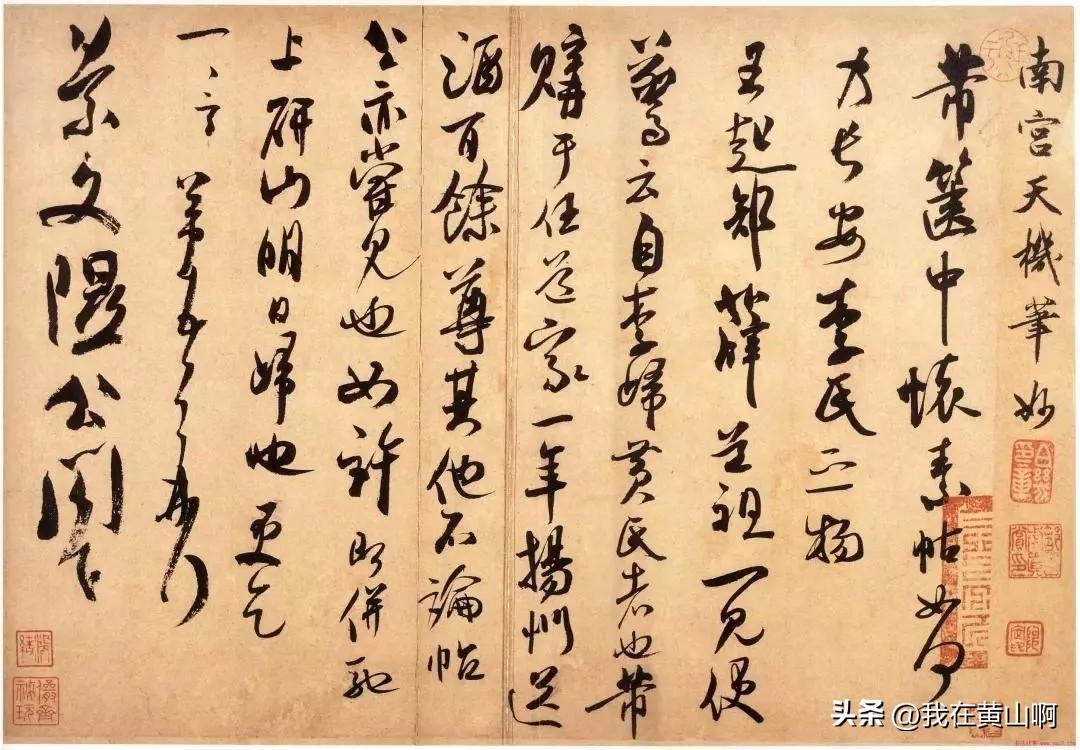 南宮天機筆妙
芾篋中懷素帖如何
乃長安李氏之物
王起部薛道祖一見便
驚云自李歸黃氏者也芾
購于任道家一年揚州送
酒百餘尊其他不論帖
公亦嘗見也如許即併馳
上研山明日歸也更乞
一言芾頓首再拜
景文隰公閣下
头条 @我在黄山啊